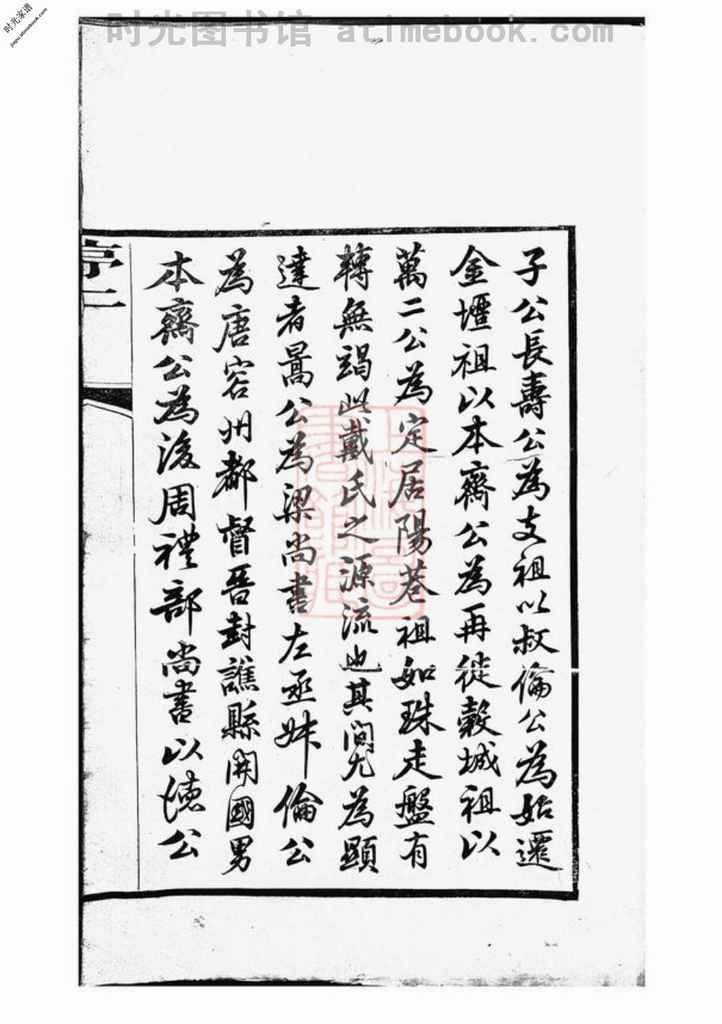 时光图书馆 atimebook.com
时光家谱
jiapu.atimebook.com
子公長壽公為支祖以叔倫公為始遷
金壇祖以本齋公為再徙穀城祖以
萬二公為定居陽巷祖如珠走盤有
轉無竭此戴氏之源流也其間尤為顯
達者暠公為梁尚書左丞叔倫公
為唐容州都督晉封譙縣開國男
本齋公為後周禮部尚書以德公
序二